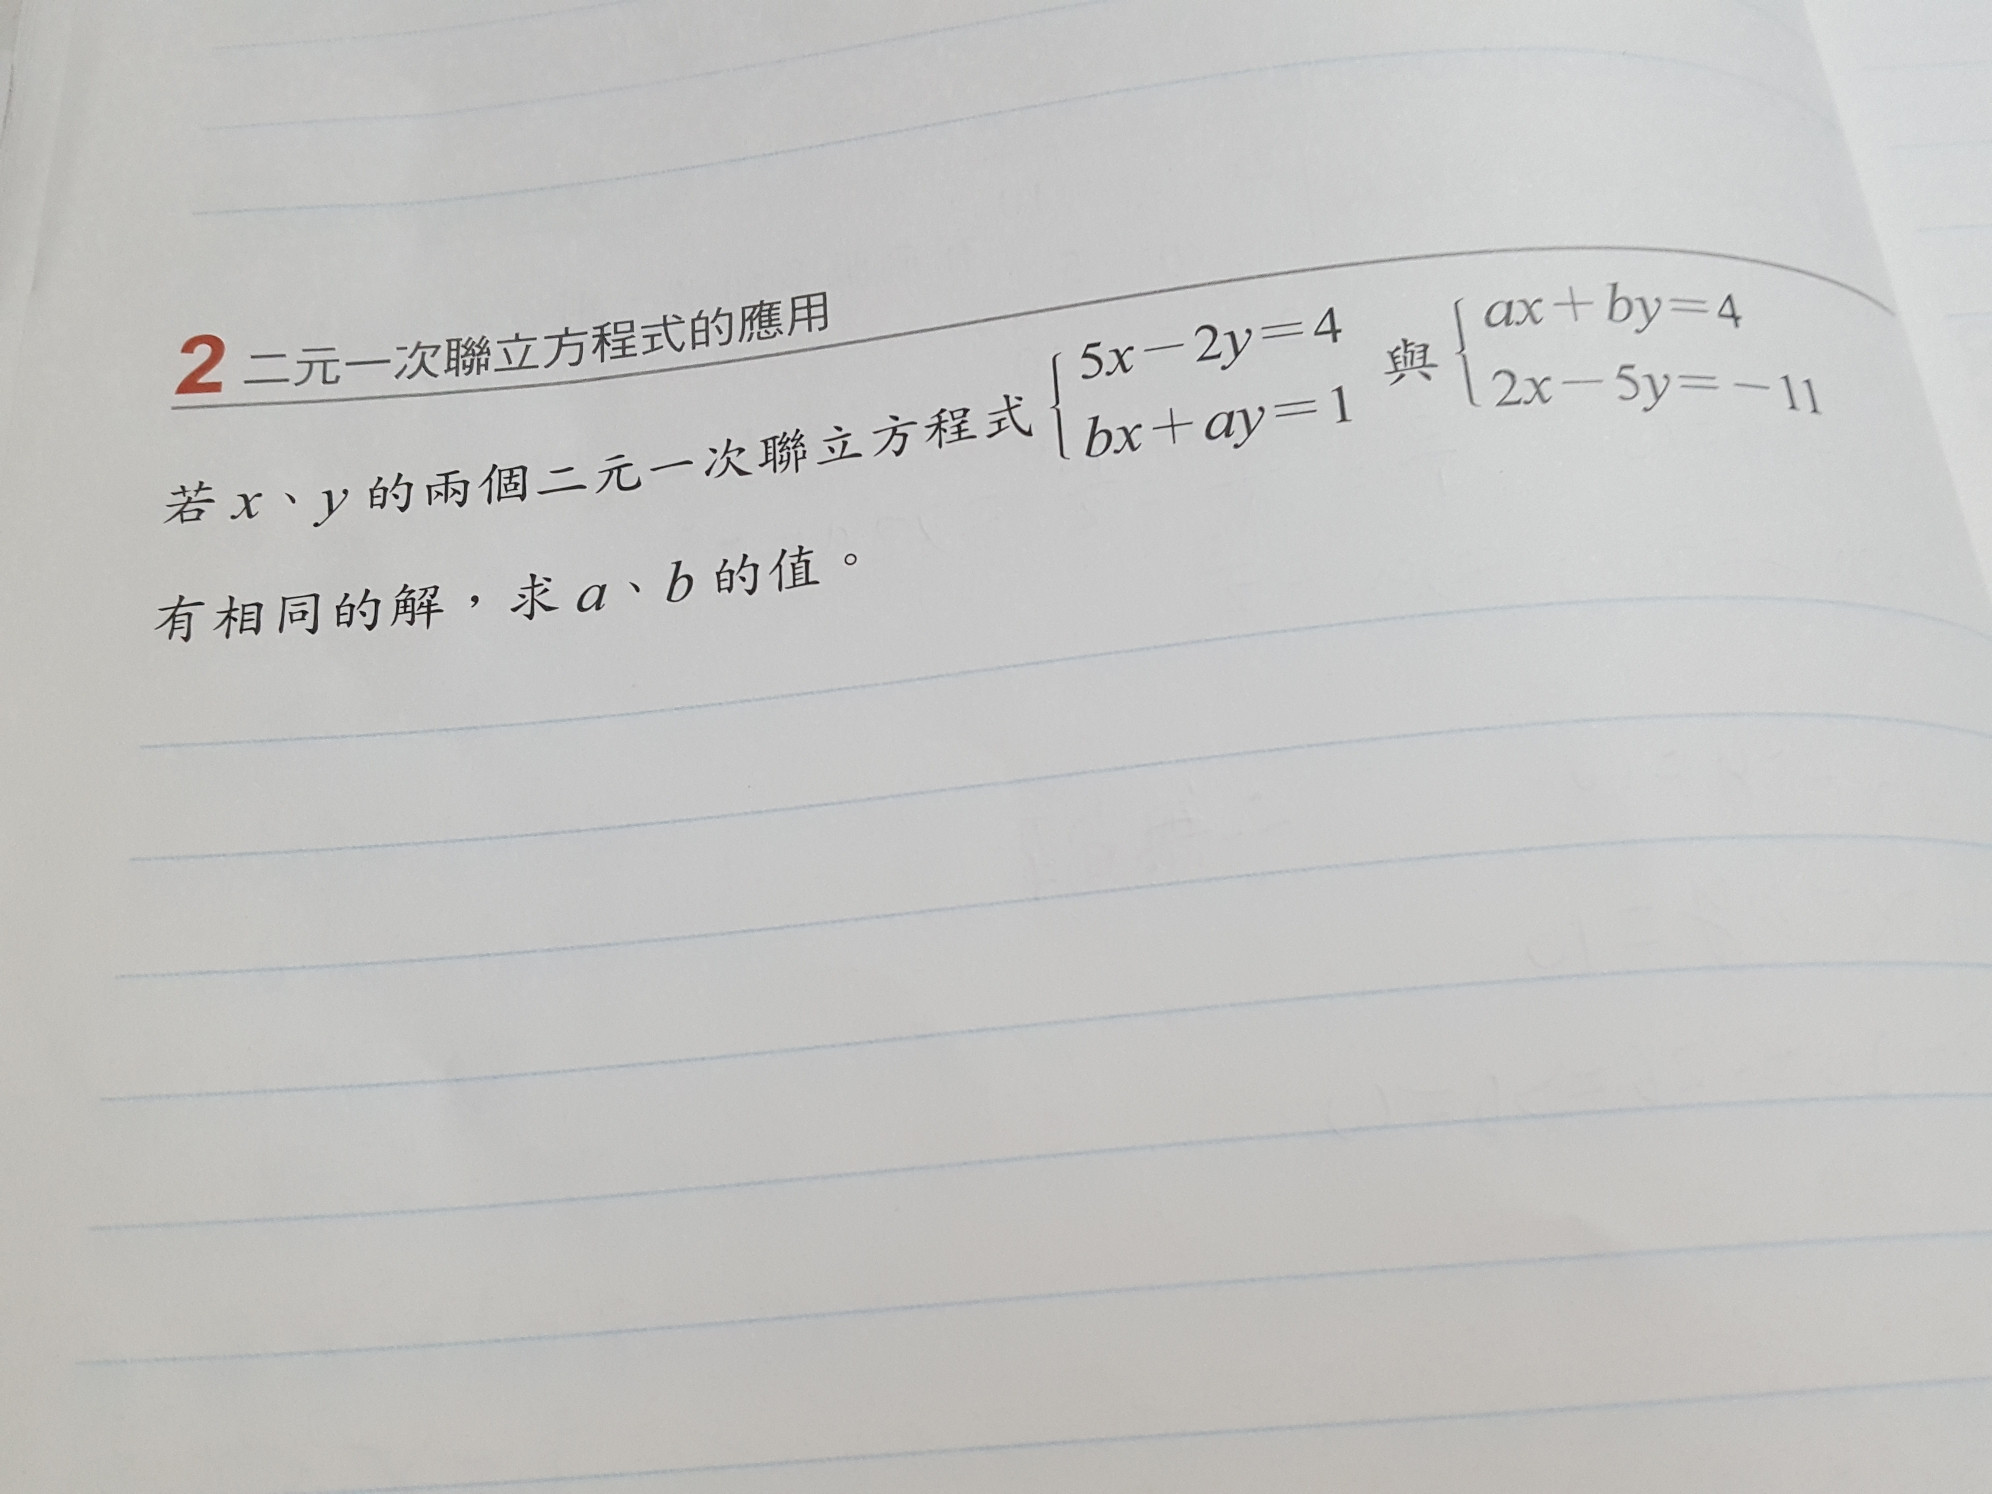 2 二元一次聯立方程式的應用
若 x、y 的兩個二元一次聯立方程式 { 5x－2y＝4
bx＋ay＝1 與 { ax＋by＝4
2x－5y＝－11
有相同的解，求 a、b 的值。